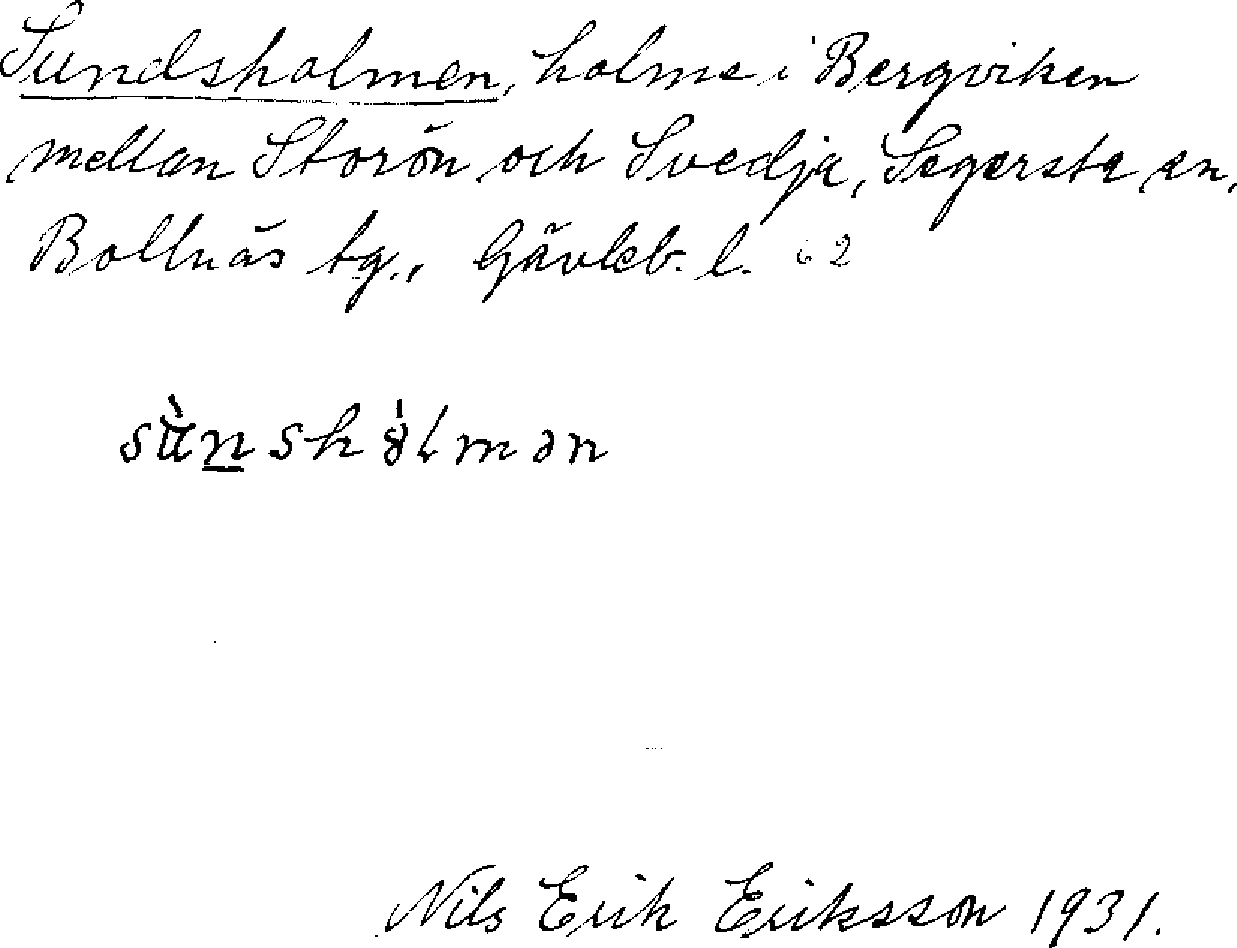 Sundsholmen, holme i Bergviken
mellan Storön och Svedja, Segersta sn,
Bollnäs tg., Gävleb. l. 62
sùnshòlmən
Nils Erik Eriksson 1931.